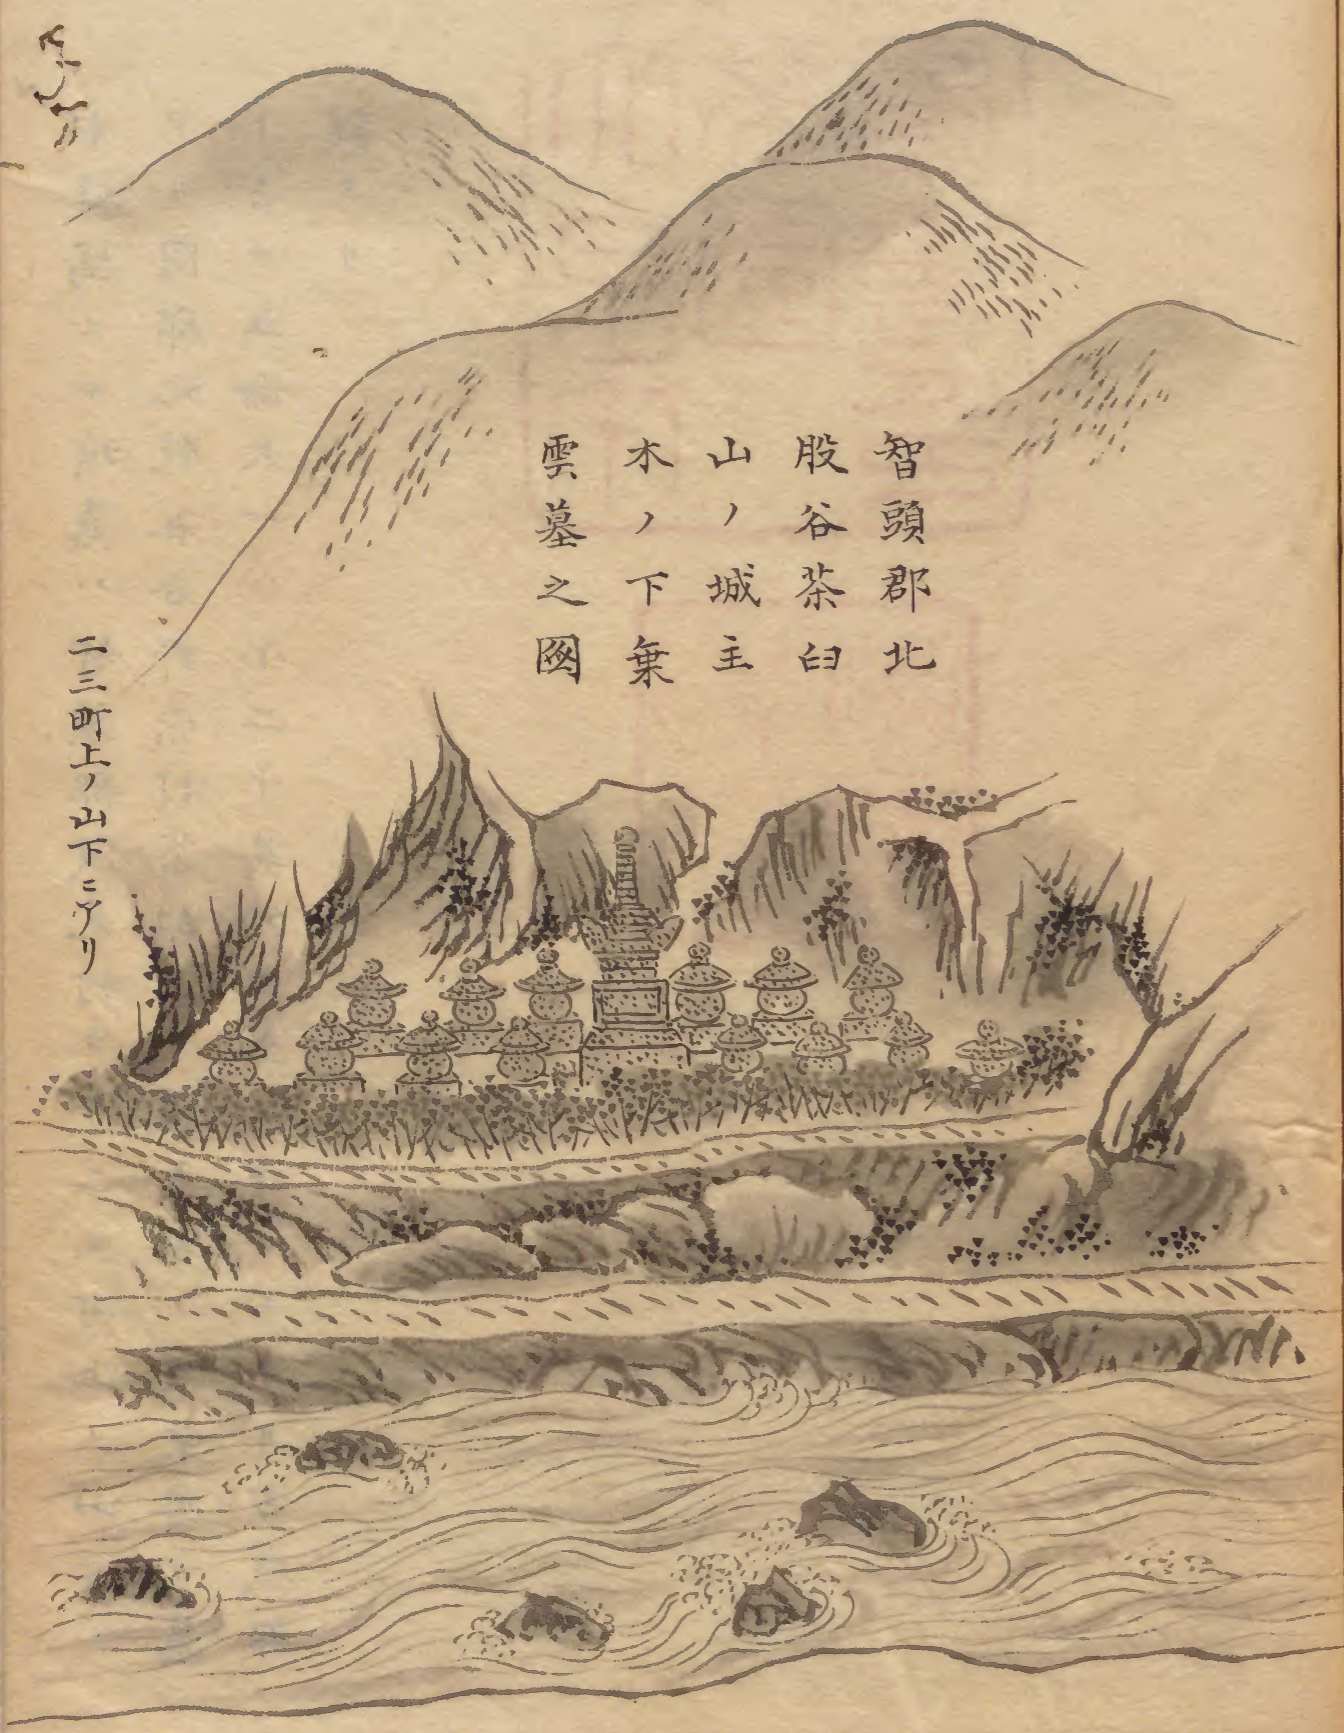 智頭郡北
股谷茶臼
山ノ城主
木ノ下葉
雲墓之圖
二三町上ノ山下ニアリ